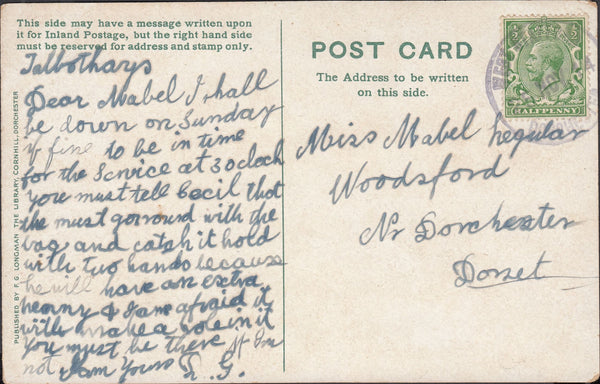 This side may have a message written upon
it for Inland Postage, but the right hand side
must be reserved for address and stamp only.
Talbothays
Dear Mabel I shall
be down on Sunday
if fine to be in time
for the Service at 3 oclock
you must tell Cecil that
he must go round with the
bag and catch it hold
with two hands because
he will have an extra
penny & I am afraid it
will make a hole in it
You must be there if I'm
not I am Yours
G.
PUBLISHED BY F. G. LONGMAN THE LIBRARY, CORNHILL, DORCHESTER
POST CARD
The Address to be written
on this side.
½ ½
HALFPENNY
Miss Mabel
Woodsford
Nr Dorchester
Dorset